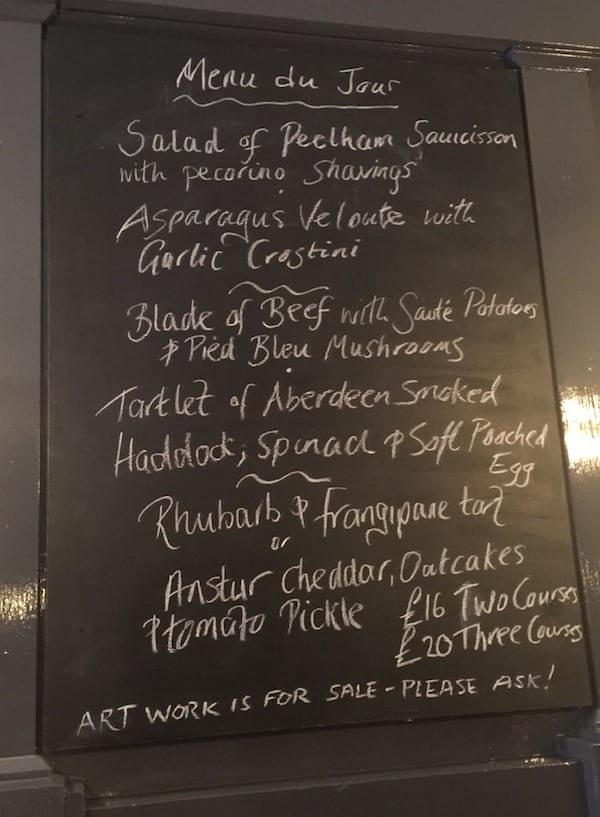 Menu du Jour
Salad of Peelham Saucisson
with pecorino Shavings
Asparagus Veloute with
Garlic Crostini
Blade of Beef with Sauté Potatoes
& Pied Bleu Mushrooms
Tartlet of Aberdeen Smoked
Haddock, Spinach & Soft Poached
Egg
Rhubarb & frangipane tart
or
Anstur cheddar, Oatcakes
& tomato Pickle £16 Two Courses
£20 Three Courses
ART WORK IS FOR SALE - PLEASE ASK!